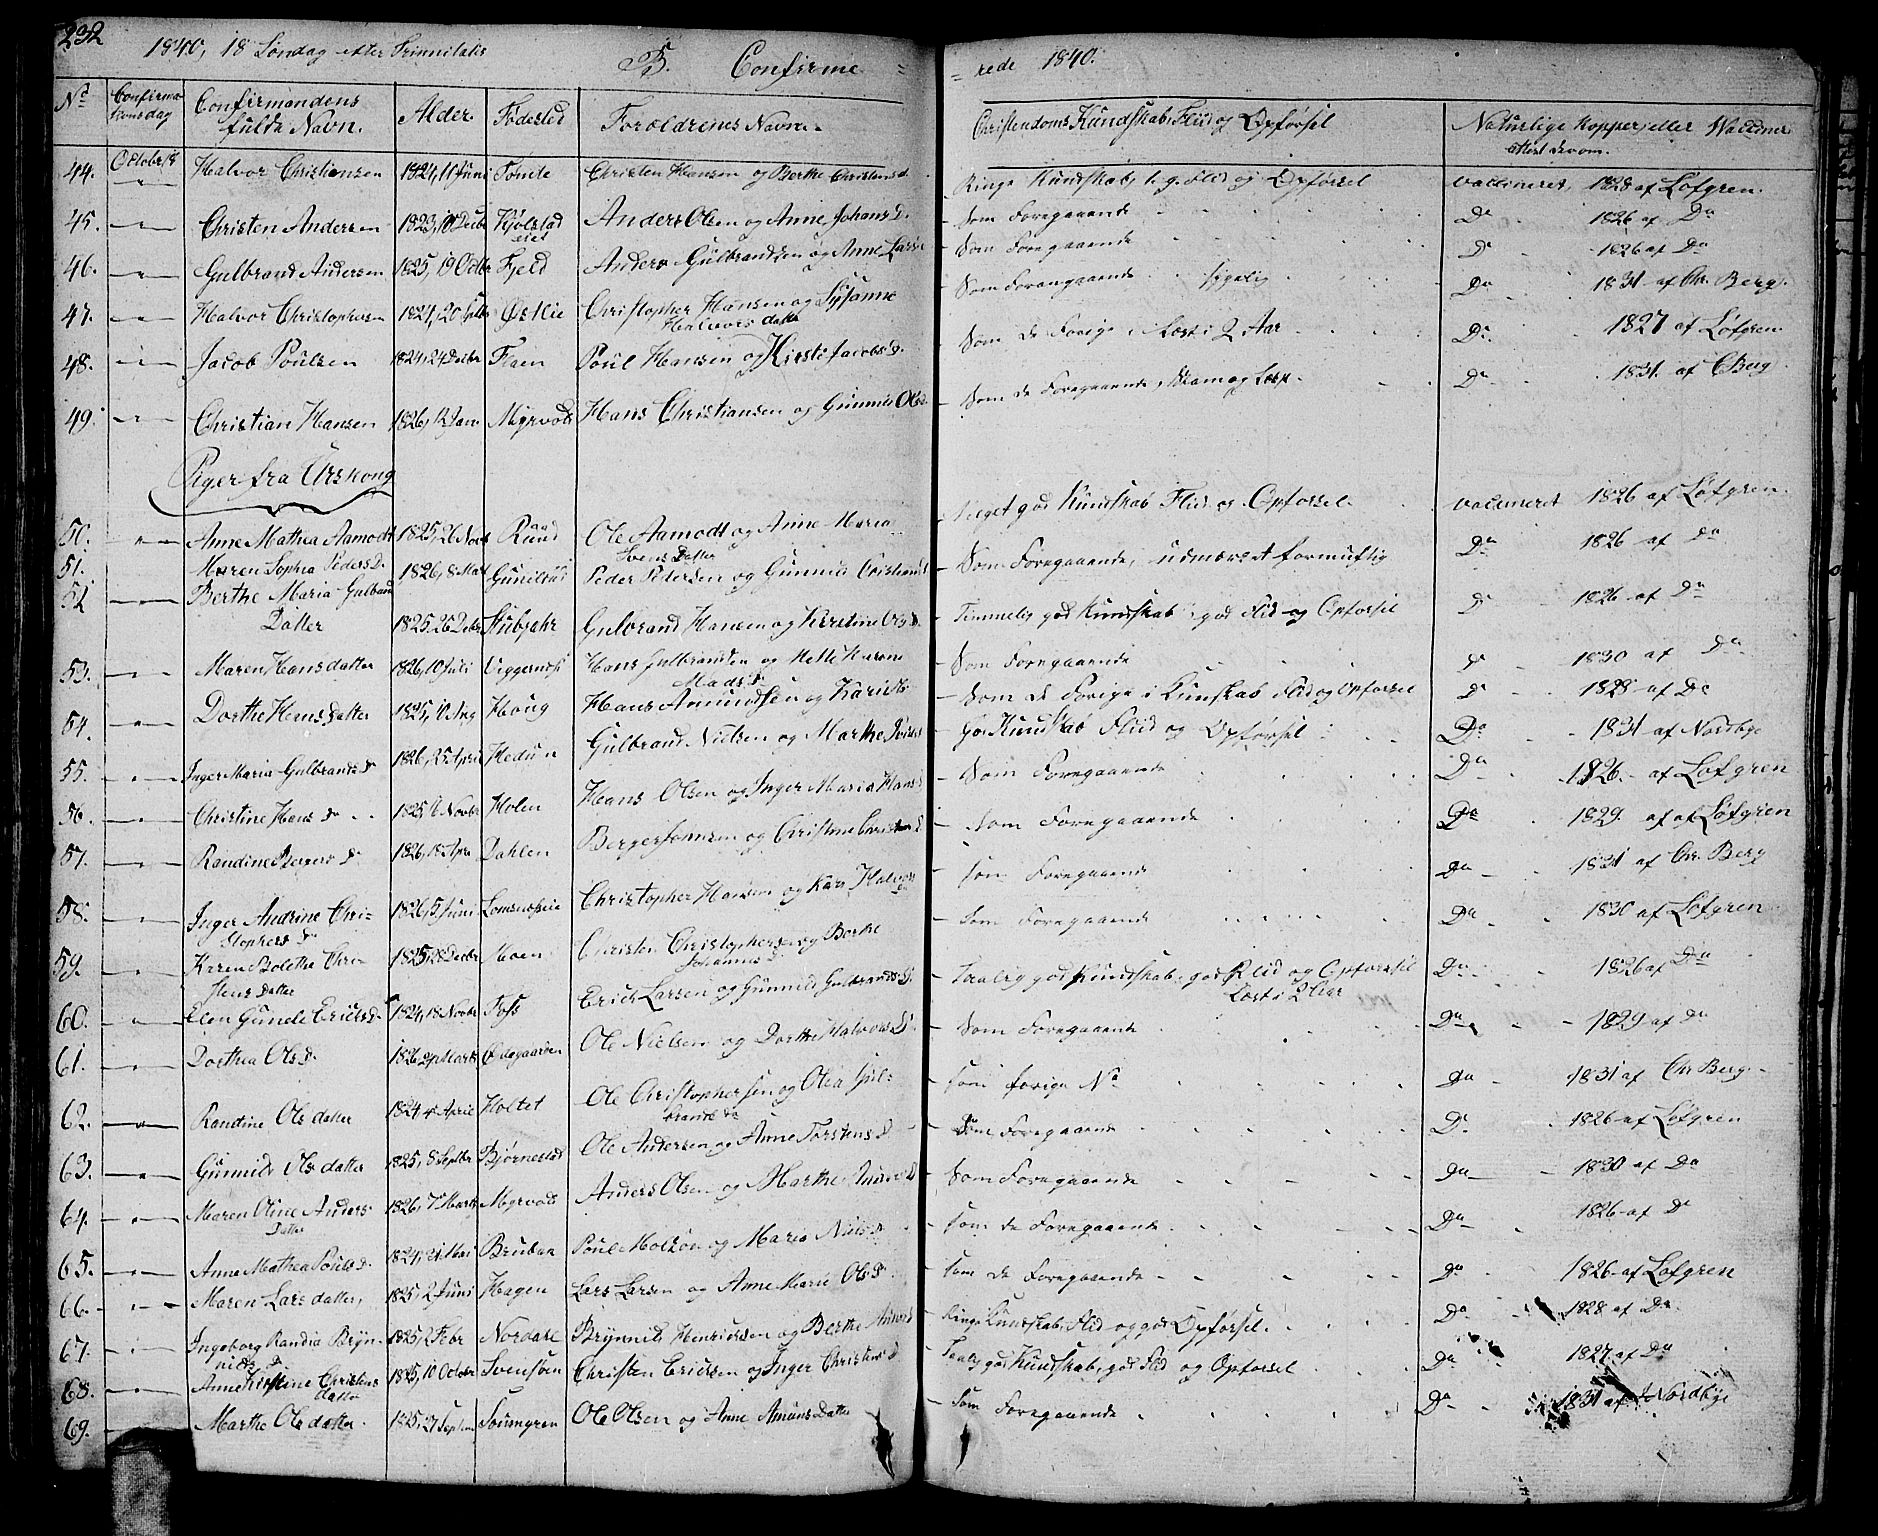 232
1840, 18 Søndag efter Trinnitatis
B. Confirme =
= rede 1840.
No
Confirmationsdag
Confirmandens fulde Navn.
Alder.
Fødested
Forældrenes Navne.
Christendoms Kundskab, Flid og Opførsel
Naturlige Kopper eller Vaccine
44. Octobr 18 Halvor Christiansen 1824, 11 Juni Tønde Christen Hansen og Berthe Christensd. Ringe Kundskab, Flid og Opførsel vaccineret, 1828 af Løfgren.
45. Christen Andersen 1823, 10 Decbr Kjølstad eiet Anders Olsen og Anne Johans D. Som Foregaaende Do 1826 af Do
46. Gulbrand Andersen 1825, 19 Octbr Fjeld Anders Gulbrandsen og Anne Larsd Som Foregaaende Do 1826 af Do
47. Halvor Christophersen 1824, 20 Østlie Christopher Hansen og Sysanne Halvors datter Som Foregaaende Do 1831 af Chr. Berg.
48. Jacob Poulsen 1824, 24 Decbr Flaen Poul Hansen og Kirsti Jacobs D. Som de Forige, Læst i 2 Aar Do 1827 af Løfgren.
49. Christian Hansen 1826, 12 Jan Myrvold Hans Christiansen og Gunnild Olsd. Som de Foregaaende, Do 1831 af C Berg
Piger fra Urskoug
50. Anne Mathea Aamodt 1825, 26 Novb Ruud Ole Aamodt og Anne Maria Svens Datter Meget god Kundskab Flid og Opførsel. vaccineret 1826 af Løfgren.
51. Maren Sophia Peders D. 1826, 8 Mai Peder Pedersen og Gunnild Christiansd Som Foregaaende, udmærket fornuftig Do 1826 af Do
52 Berthe Maria Gulbrand Datter 1825, 26 Decbr Stubjahr Gulbrand Hansen og Kirstine Ols D. Temmelig god Kundskab, god Flid og Opførsel Do 1826 af Do
53. Maren Hansdatter 1826, 10 Juli Hans Gulbrandsen og Mads D. Som Foregaaende Do 1830 af Do
54. Dorthe Hans Datter 1825, Aug Houg Hans Amundsen og Kari Som de Forige i Kunskab Flid og Opførsel Do 1828 af Do
55. Inger Maria Gulbrands D 1826, 25 April Hedun Gulbrand Nielsen og Marthe God Kundskab Flid og Opførsel Do 1831 af Nordbye
56. Christine Hans D 1825, 16 Novbr Holen Hans Olsen og Inger Maria Hans D Som Foregaaende Do 1826 af Løfgren
57. Randine Bergers D 1826, 18 Apr Dahlen Berger Jonsen og Christine Som Foregaaende Do 1829 af Løfgren
58. Inger Andrine Christophers D 1826, 5 Juni Christopher Hansen og Kari Halvors D Som Foregaaende Do 1831 af Chr. Berg
59. Karen Bolethe Christens Datter 1825, 18 Decbr Moen Christen Christophersen og Berthe Johannes D. Som Foregaaende Do 1830 af Løfgren
60. Elen Gunild Erics D. 1824, 18 Novbr Foss Erich Larsen og Gunnild Gulbrands D. Taalig god Kundskab, god Flid og Opførsel Læst i 2 Aar Do 1826 af Do
61. Dorthea Ols D. 1826 Marts Ødegaarden Ole Nielsen og Dorthe Halvors D. Som Foregaaende Do 1829 af Do
62. Randine Olsdatter 1824 4 April Holtet Ole Christophersen og Olea Gulbrands D. som forige No Do 1831 af Chr Berg
63. Gunnild Olsdatter 1825, 8 Septbr Bjørnestad Ole Andersen og Anne Torstens D Som Foregaaende Do 1826 af Løfgren
64. Maren Oline Anders Datter 1826, 7 Marts Myrvold Anders Olsen og Marthe D Som Foregaaende Do 1830 af Do
65. Anne Mathea Pouls D. 1824, 21 Mai Poul og Maria Niels D som de Foregaaende. Do 1826 af Do
66. Maren Lars datter, 1825, 2 Juni Hagen Lars Larsen og Anne Marie Ols D. som de Foregaaende Do 1826 af Løfgren
67. Ingeborg Randia Brynnilds D 1825, 2 Febr Nordare Brynnild Henricksen og Berthe Ringe Kundskab, Flid og god Opførsel. Do 1828 af Do
68. Anne Kirstine Christens datter 1825, 10 Octobr Svensøen Christen Ericksen og Inger Christens D Taalig god Kundskab, god Flid og Opførsel Do 1827 af Do
69. Marthe Olsdatter. 1825, 27 Septem Ole Olsen og Anne Amuns Datter Som Foregaaende Do 1831 af Nordbye